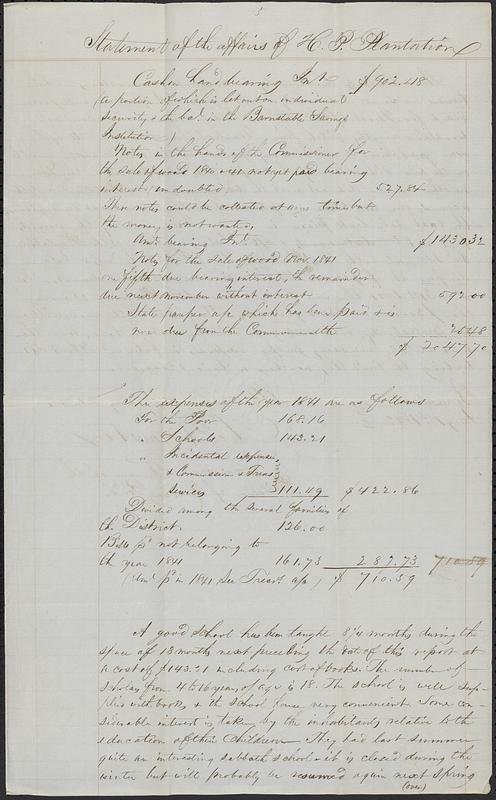 5
Statement of the affairs of H. P. Plantation
Cash on hand bearing Int. $902.48
(a portion of which is let out on individual
security & the bal. in the Barnstable Savings
Institution)
Notes in the hands of the Commissioner for
the sale of wood 1840 & 41 not yet paid bearing
interest, undoubted 527.84
These notes could be collected at any time but
the money is not wanted,
Amt. bearing Int. $1430.32
Notes for the sale of wood Nov. 1841
one fifth due bearing interest, the remainder
due next November without interest 592.00
State pauper a/c which has been paid & is
now due from the Commonwealth 25.48
$ 2047.70
The expenses of the year 1841 are as follows
For the Poor 168.16
" Schools 143.21
" Incidental expenses,
& Commissioner & Treas.
Services 111.49 $422.86
Divided among the several families of
the District 126.00
Bills pd. not belonging to
the year 1841 161.73 287.73 710.59
(Amt. pd. in 1841 See Treas. a/c) $ 710.59
A good school has been taught 8 1/4 months during the
space of 13 months next preceding the date of this report at
a cost of $143.21 including cost of books. The number of
scholars from 4 to 16 years of age is 18. The school is well sup-
plied with books & the school house very convenient. Some con-
siderable interest is taken by the inhabitants relative to the
education of their children. They had last summer
quite an interesting sabbath school & it is closed during the
winter but will probably be resumed again next spring
(over)